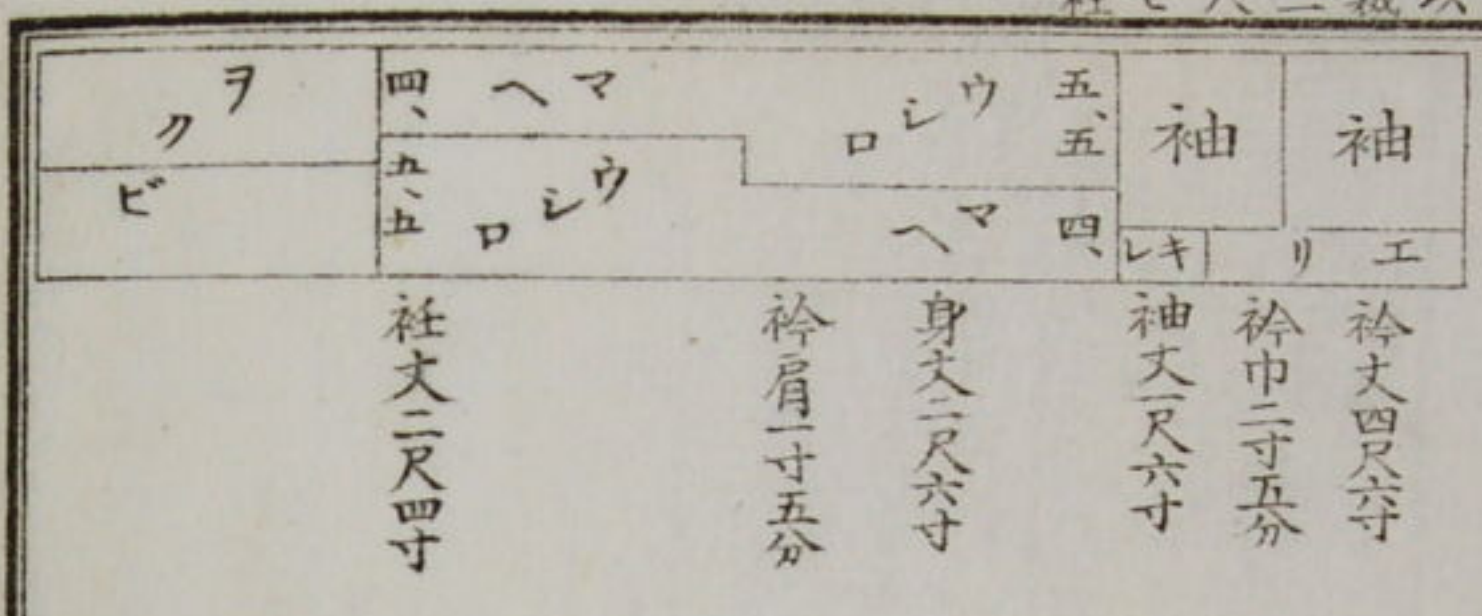 袖
袖
エリ
キレ
五、五
ウシロ
四、
マヘ
マヘ
四、
ウシロ
五、五
ヲクビ
衿丈四尺六寸
衿巾二寸五分
袖丈一尺六寸
身丈二尺六寸
衿肩一寸五分
衽丈二尺四寸